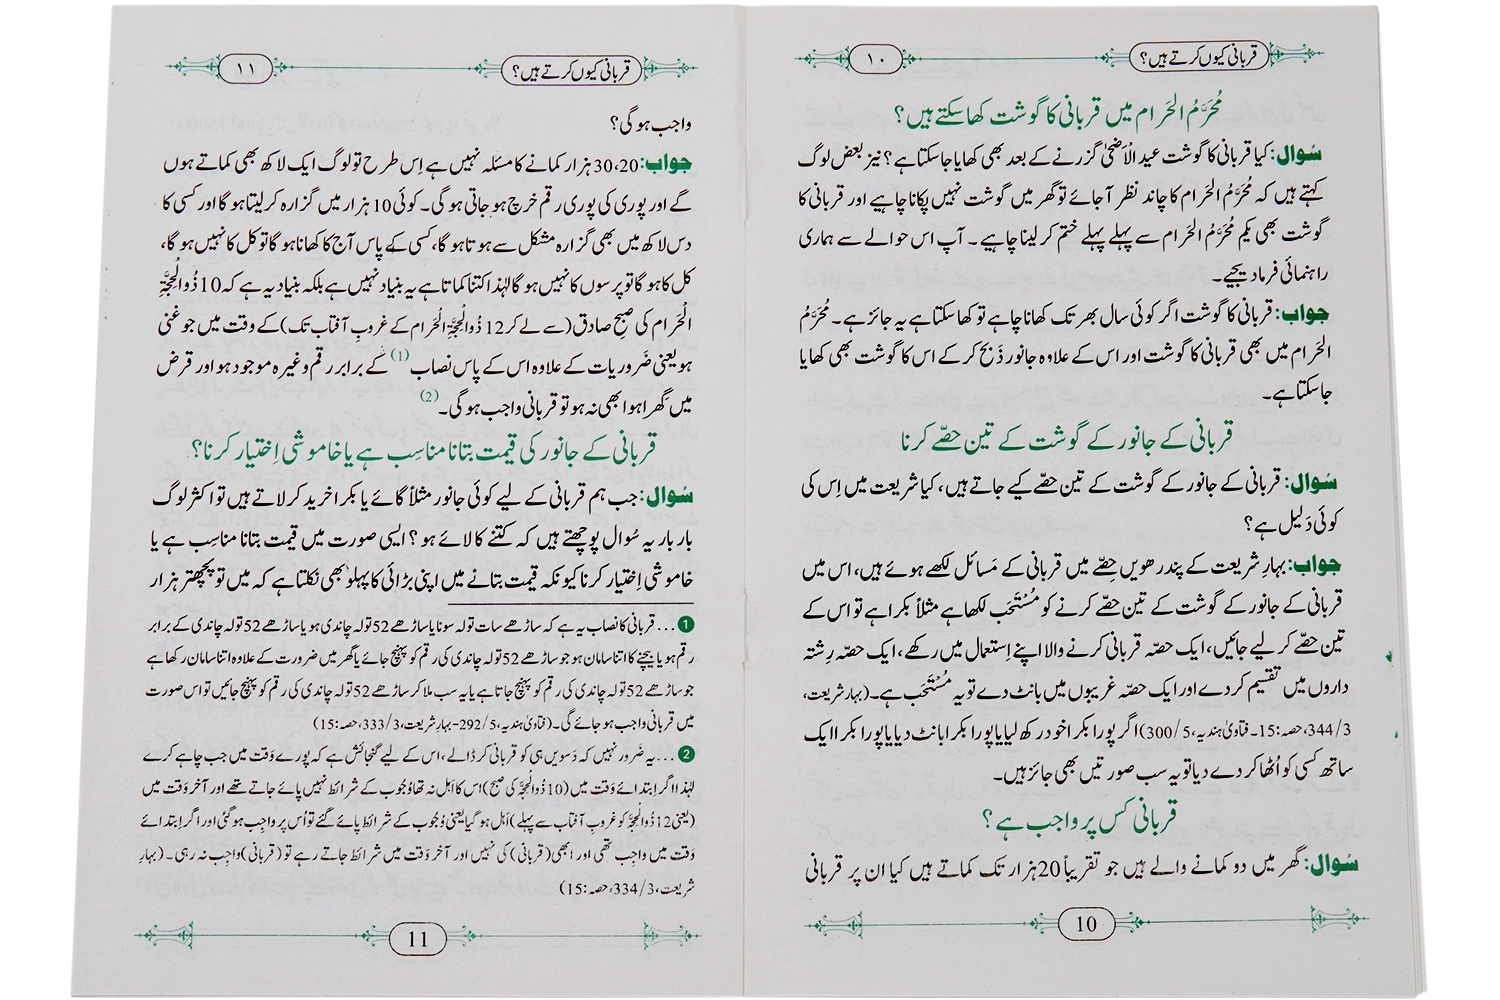 قربانی کیوں کرتے ہیں؟
۱۰
مُحَرَّمُ الحَرام میں قربانی کا گوشت کھا سکتے ہیں؟
سُوال: کیا قربانی کا گوشت عید الْاَضْحٰی گزرنے کے بعد بھی کھایا جا سکتا ہے؟ نیز بعض لوگ
کہتے ہیں کہ مُحَرَّمُ الحَرام کا چاند نظر آجائے تو گھر میں گوشت نہیں پکانا چاہیے اور قربانی کا
گوشت بھی یکم مُحَرَّمُ الحَرام سے پہلے پہلے ختم کر لینا چاہیے۔ آپ اس حوالے سے ہماری
راہنمائی فرما دیجیے۔
جواب: قربانی کا گوشت اگر کوئی سال بھر تک کھانا چاہے تو کھا سکتا ہے یہ جائز ہے۔ مُحَرَّمُ
الحَرام میں بھی قربانی کا گوشت اور اس کے علاوہ جانور ذَبح کر کے اس کا گوشت بھی کھایا
جا سکتا ہے۔
قربانی کے جانور کے گوشت کے تین حصّے کرنا
سُوال: قربانی کے جانور کے گوشت کے تین حصّے کیے جاتے ہیں، کیا شریعت میں اِس کی
کوئی دَلیل ہے؟
جواب: بہارِ شریعت کے پندرھویں حِصّے میں قربانی کے مَسائل لکھے ہوئے ہیں، اس میں
قربانی کے جانور کے گوشت کے تین حصّے کرنے کو مُسْتَحَب لکھا ہے مثلاً بکرا ہے تو اس کے
تین حصّے کر لیے جائیں، ایک حصّہ قربانی کرنے والا اپنے اِستعمال میں رکھے، ایک حصّہ رِشتہ
داروں میں تقسیم کر دے اور ایک حصّہ غریبوں میں بانٹ دے تو یہ مُسْتَحَب ہے۔ (بہار شریعت،
3/344، حصہ:15۔ فتاویٰ ہندیہ، 5/300) اگر پورا بکرا خود رکھ لیا یا پورا بکرا بانٹ دیا یا پورا بکرا ایک
ساتھ کسی کو اُٹھا کر دے دیا تو یہ سب صورتیں بھی جائز ہیں۔
قربانی کس پر واجب ہے؟
سُوال: گھر میں دو کمانے والے ہیں جو تقریباً 20 ہزار تک کماتے ہیں کیا ان پر قربانی
10
قربانی کیوں کرتے ہیں؟
۱۱
واجب ہوگی؟
جواب: 20، 30 ہزار کمانے کا مسئلہ نہیں ہے اِس طرح تو لوگ ایک لاکھ بھی کماتے ہوں
گے اور پوری کی پوری رقم خرچ ہو جاتی ہوگی۔ کوئی 10 ہزار میں گزارہ کر لیتا ہوگا اور کسی کا
دس لاکھ میں بھی گزارہ مشکل سے ہوتا ہوگا، کسی کے پاس آج کا کھانا ہوگا تو کل کا نہیں ہوگا،
کل کا ہوگا تو پرسوں کا نہیں ہوگا لہٰذا کتنا کماتا ہے یہ بنیاد نہیں ہے بلکہ بنیاد یہ ہے کہ 10 ذُوالْحِجَّۃِ
الْحَرام کی صبحِ صادق (سے لے کر 12 ذُوالْحِجَّۃِ الْحَرام کے غروبِ آفتاب تک) کے وقت میں جو غنی
ہو یعنی ضَروریات کے علاوہ اس کے پاس نصاب (1) کے برابر رقم وغیرہ موجود ہو اور قرض
میں گھِرا ہوا بھی نہ ہو تو قربانی واجب ہوگی۔ (2)
قربانی کے جانور کی قیمت بتانا مناسِب ہے یا خاموشی اِختیار کرنا؟
سُوال: جب ہم قربانی کے لیے کوئی جانور مثلاً گائے یا بکرا خرید کر لاتے ہیں تو اکثر لوگ
بار بار یہ سُوال پوچھتے ہیں کہ کتنے کا لائے ہو؟ ایسی صورت میں قیمت بتانا مناسِب ہے یا
خاموشی اِختیار کرنا کیونکہ قیمت بتانے میں اپنی بڑائی کا پہلو بھی نکلتا ہے کہ میں تو پچھتر ہزار
1 ... قربانی کا نصاب یہ ہے کہ ساڑھے سات تولہ سونا یا ساڑھے 52 تولہ چاندی ہو یا ساڑھے 52 تولہ چاندی کے برابر
رقم ہو یا بیچنے کا اتنا سامان ہو جو ساڑھے 52 تولہ چاندی کی رقم کو پہنچ جائے یا گھر میں ضرورت کے علاوہ اتنا سامان رکھا ہے
جو ساڑھے 52 تولہ چاندی کی رقم کو پہنچ جاتا ہے یا یہ سب ملا کر ساڑھے 52 تولہ چاندی کی رقم کو پہنچ جائیں تو اس صورت
میں قربانی واجب ہو جائے گی۔ (فتاویٰ ہندیہ، 5/292- بہار شریعت، 3/333، حصہ:15)
2 ... یہ ضَرور نہیں کہ دَسویں ہی کو قربانی کر ڈالے، اس کے لیے گنجائش ہے کہ پورے وَقت میں جب چاہے کرے
لہٰذا اگر اِبتدائے وَقت میں (10 ذُوالْحِجَّہ کی صبح) اس کا اَہل نہ تھا وُجُوب کے شرائط نہیں پائے جاتے تھے اور آخر وَقت میں
(یعنی 12 ذُوالْحِجَّہ کو غروبِ آفتاب سے پہلے) اَہل ہو گیا یعنی وُجُوب کے شرائط پائے گئے تو اُس پر واجِب ہو گئی اور اگر اِبتدائے
وَقت میں واجِب تھی اور ابھی (قربانی) کی نہیں اور آخر وَقت میں شرائط جاتے رہے تو (قربانی) واجِب نہ رہی۔ (بہارِ
شریعت، 3/334، حصہ:15)
11